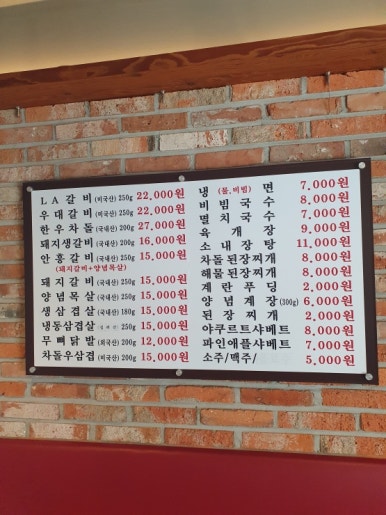 LA갈비(미국산) 250g 22,000원
우대갈비(미국산) 250g 22,000원
한우차돌(국내산) 200g 27,000원
돼지생갈비(국내산) 200g 16,000원
안흥갈비(국내산) 250g 15,000원
(돼지갈비+양념목살)
돼지갈비(국내산) 250g 15,000원
양념목살(국내산) 250g 15,000원
생삼겹살(국내산) 180g 15,000원
냉동삼겹살 250g 15,000원
무뼈닭발(외국산) 200g 12,000원
차돌우삼겹(미국산) 200g 15,000원
냉(물,비빔)면 7,000원
비빔국수 8,000원
멸치국수 7,000원
육개장 9,000원
소내장탕 11,000원
차돌된장찌개 8,000원
해물된장찌개 8,000원
계란푸딩 2,000원
양념게장(300g) 6,000원
된장찌개 2,000원
야쿠르트샤베트 8,000원
파인애플샤베트 7,000원
소주/맥주/ 5,000원